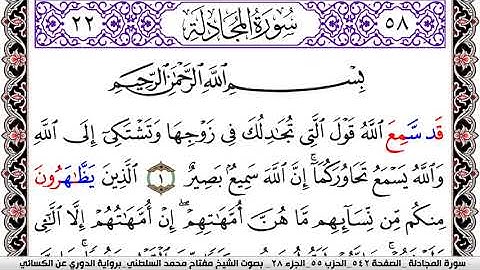 ٢٢ سُورَةُ المُجَادلَة ٥٨
بِسْمِ اللَّهِ الرَّحْمَٰنِ الرَّحِيمِ
قَد سَّمِعَ اللَّهُ قَوْلَ الَّتِي تُجَادِلُكَ فِي زَوْجِهَا وَتَشْتَكِي إِلَى اللَّهِ
وَاللَّهُ يَسْمَعُ تَحَاوُرَكُمَا ۚ إِنَّ اللَّهَ سَمِيعٌ بَصِيرٌ ١ الَّذِينَ يَظَّاهَرُونَ
مِنكُم مِّن نِّسَآئِهِم مَّا هُنَّ أُمَّهَاتِهِمْ ۖ إِنْ أُمَّهَاتُهُمْ إِلَّا الَّٰٓـِٔي
سورة المجادلة _ الصفحة ٥٤٢_الحزب ٥٥_الجزء ٢٨ _ بصوت الشيخ مفتاح محمد السلطني _برواية الدوري عن الكسائي